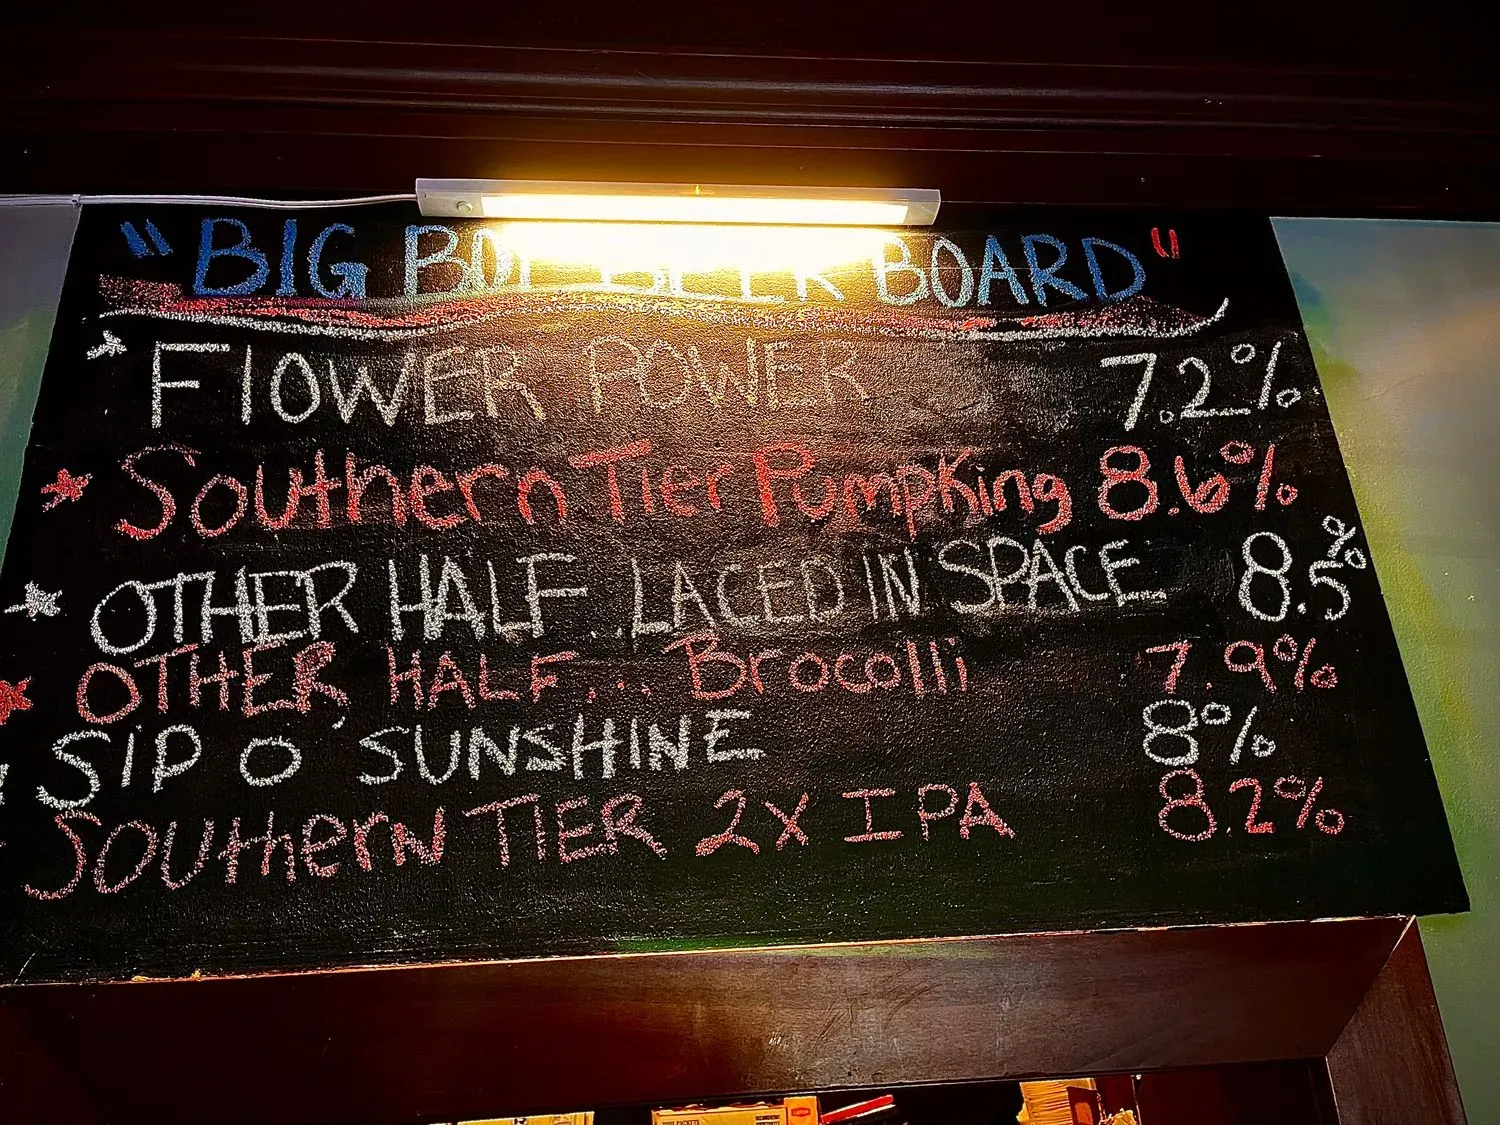 "BIG BOI BEER BOARD"
* FlOWER POWER 7.2%
* Southern Tier Pumpking 8.6%
* OTHER HALF... LACED IN SPACE 8.5%
* OTHER HALF... Brocolli 7.9%
SIP O' SUNSHINE 8%
SOUthErN TIER 2X IPA 8.2%